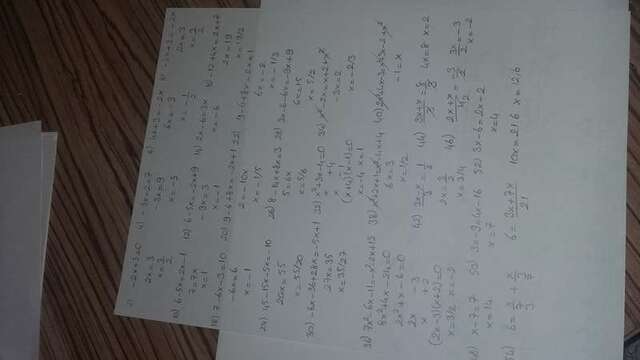 2) -2x+3=0 4) -3x-2=7 6) 4x+3=-2x 8) -2x+3=-2x
2x=3 -3x=9 6x=-3 2x=3
x=3/2 x=-3 x=-1/2 x=3/2
10) 6-5x=2x-1 12) 6-5x=-2x+9 14) 2x-6=3x 16) -12+4x=2x+7
7=7x -3x=3 x=-6 2x=19
x=1 x=-1 x=19/2
18) 7-6x-3=10 20) 9-6+8x=-2x+1 22)
-6x=6 2=-10x 6x=-2
x=-1 x=-1/5 x=-1/3
24) 45-15x-5x=-10 26) 8-14x+8x=3 28) 3x-6-6x=-9x+9
20x=55 5=6x 6x=15
x=55/20 x=5/6 x=5/2
30) -6x-36+28x=-5x+1 32) x²+3x-4=0 34) x²-2x=x+2+x²
27x=35 x +4 -3x=2
x=35/27 x -1 x=-2/3
(x+4)(x-1)=0
x=-4 x=1
36) 7x²-6x-11=-x²-2x+13 38) x²+2x+1=x²-4x+4 40)
8x²+4x-24=0 6x=3 -1=x
2x²+x-6=0 x=1/2
2x -3 42) 3x-x/3=1/2 44) 3x+x/2=8/2 4x=8 x=2
x +2
(2x-3)(x+2)=0 2x=3/2 46) 2x+x/42=-3/2 3x/2=-3
x=3/2 x=-2 x=3/4 x=-2
48) x-7=7 50) 3x-9=4x-16 52) 3x-6=2x-2
x=14 x=7 x=4
54) 6=x/7/3+x/3/7 6=3x+7x/21 10x=21.6 x=12,6